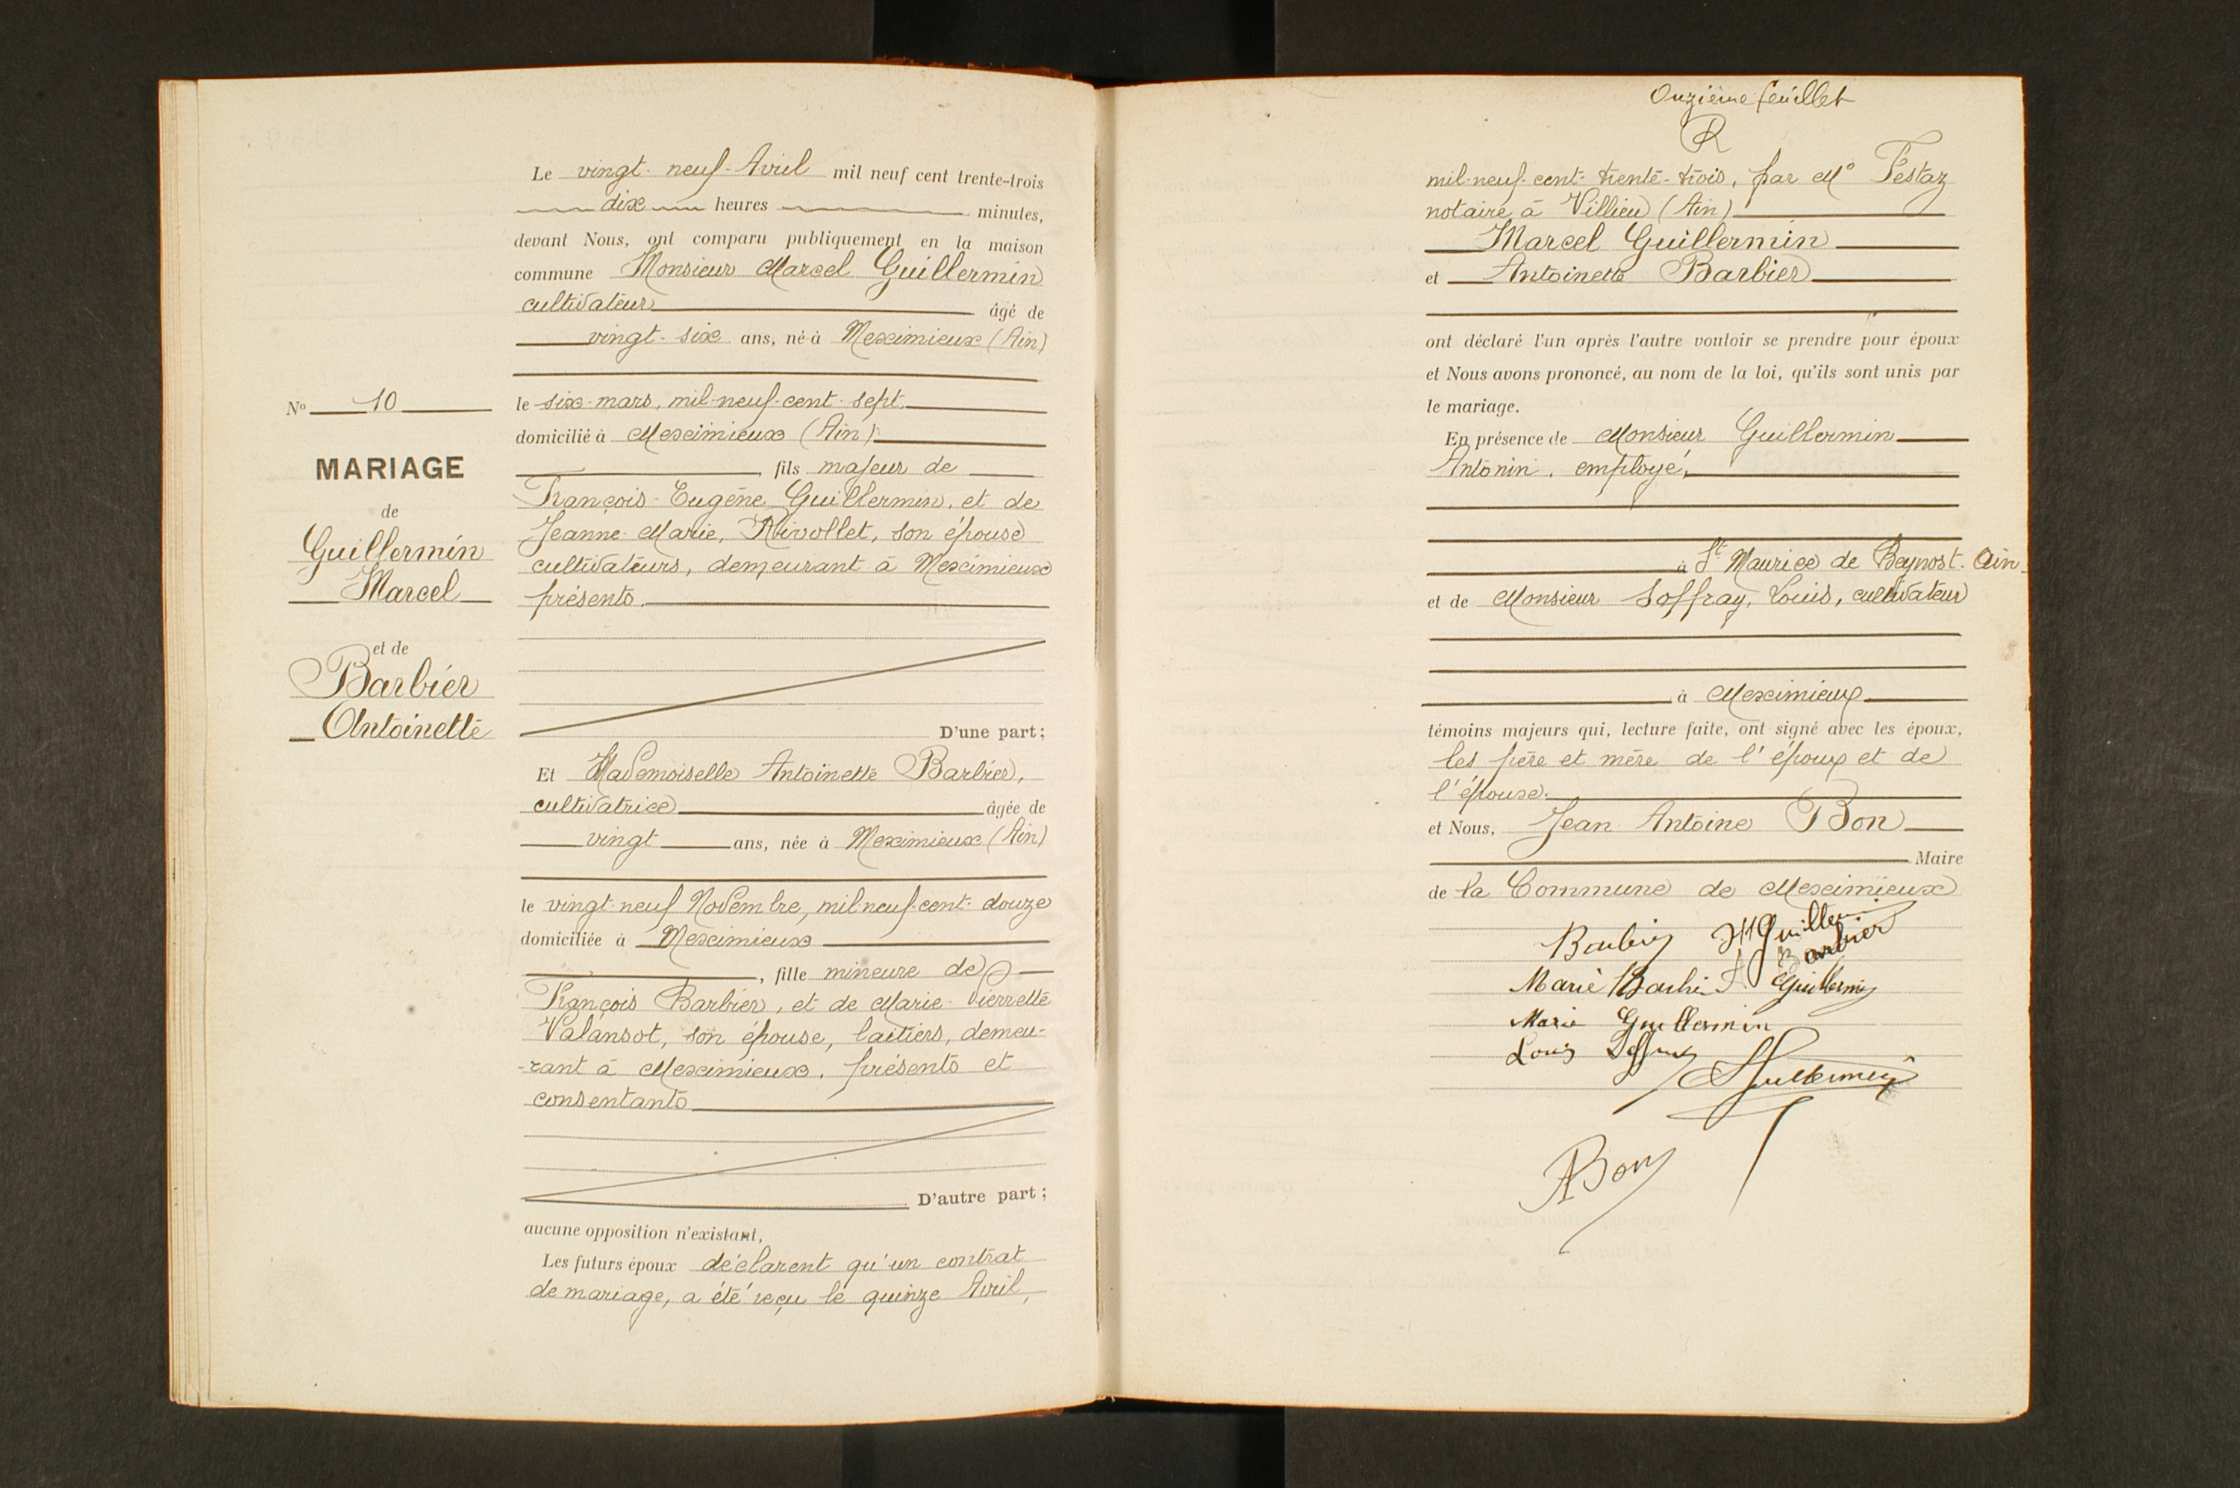 Le vingt-neuf Avril mil neuf cent trente-trois
dix heures minutes,
devant Nous, ont comparu publiquement en la maison
commune Monsieur Marcel Guillermin
cultivateur âgé de
vingt-six ans, né à Meximieux (Ain)
le six mars, mil-neuf-cent-sept
domicilié à Meximieux (Ain)
, fils majeur de
François-Eugène Guillermin, et de
Jeanne-Marie, Rivollet, son épouse
cultivateurs, demeurant à Meximieux
présents.
D'une part;
No 10
MARIAGE
de
Guillermin
Marcel
et de
Barbier
Antoinette
Et Mademoiselle Antoinette Barbier,
cultivatrice âgée de
vingt ans, née à Meximieux (Ain)
le vingt-neuf Novembre, mil neuf-cent-douze
domiciliée à Meximieux
, fille mineure de
François Barbier, et de Marie-Pierrette
Valansot, son épouse, laitiers, demeu-
-rant à Meximieux, présents et
consentants
D'autre part;
aucune opposition n'existant,
Les futurs époux déclarent qu'un contrat
de mariage, a été reçu le quinze Avril,
Onzième feuillet
R
mil-neuf-cent-trente-trois, par Me Festaz
notaire à Villieu (Ain)
Marcel Guillermin
et Antoinette Barbier
ont déclaré l'un après l'autre vouloir se prendre pour époux
et Nous avons prononcé, au nom de la loi, qu'ils sont unis par
le mariage.
En présence de Monsieur Guillermin
Antonin, employé,
à St Maurice de Beynost. Ain
et de Monsieur Soffray, Louis, cultivateur
à Meximieux
témoins majeurs qui, lecture faite, ont signé avec les époux,
les père et mère de l'époux et de
l'épouse.
et Nous, Jean Antoine Bon
Maire
de la Commune de Meximieux
Guillermin
Barbier
Marie Barbier F. Guillermin
Marie Guillermin
Louis Soffray
Guillermin
ABon